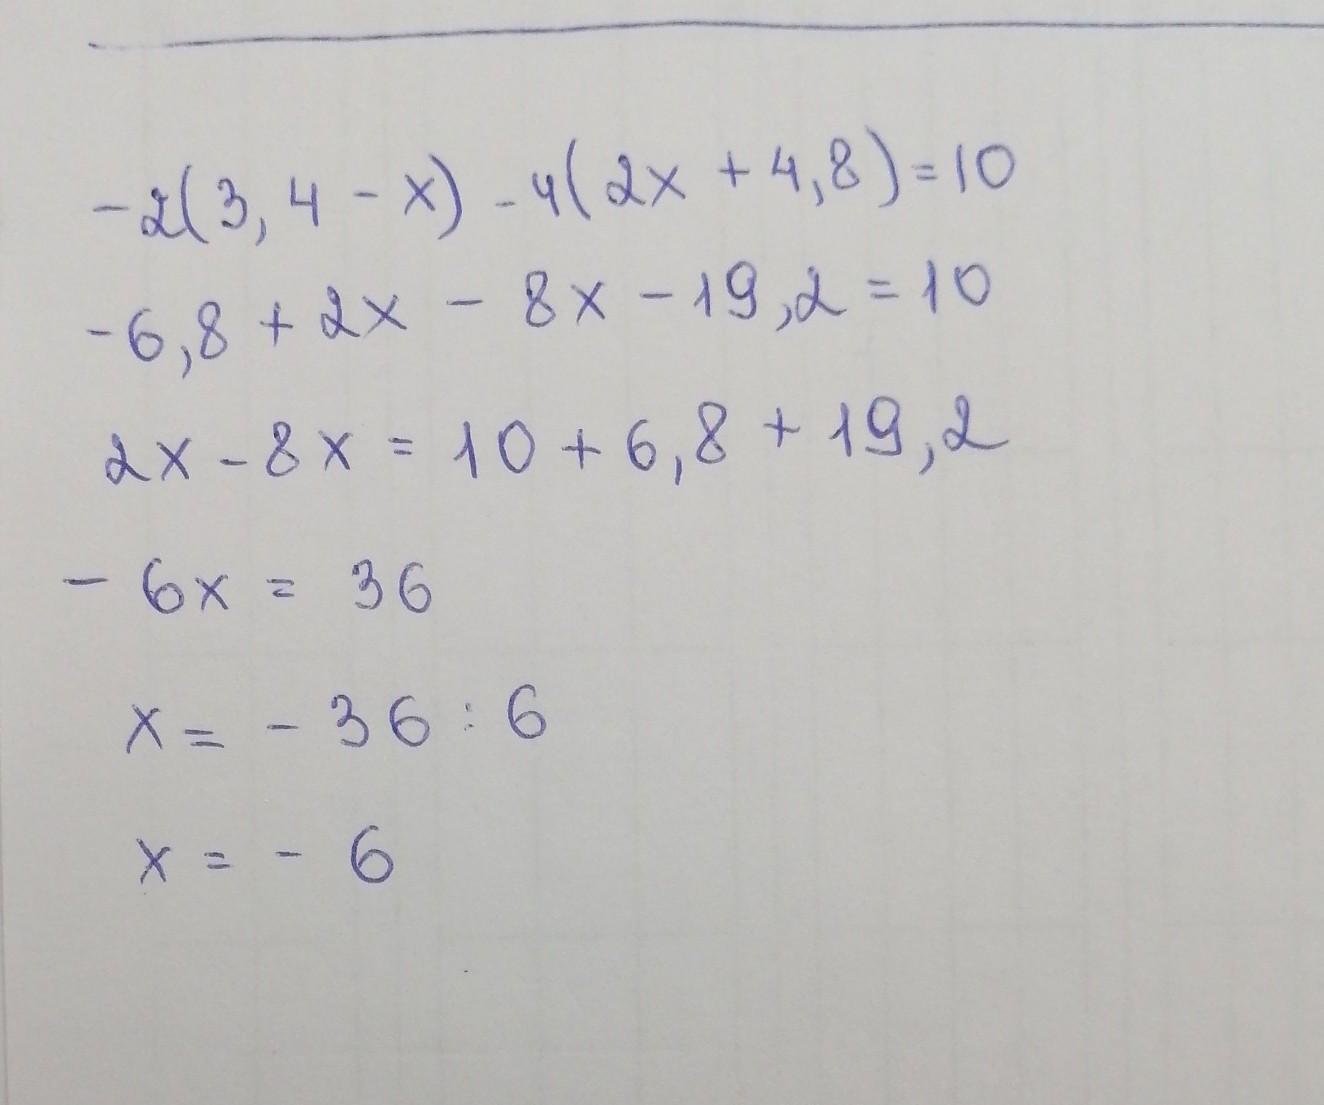 -2(3,4 - x) - 4(2x + 4,8) = 10
-6,8 + 2x - 8x - 19,2 = 10
2x - 8x = 10 + 6,8 + 19,2
- 6x = 36
x = - 36 : 6
x = - 6